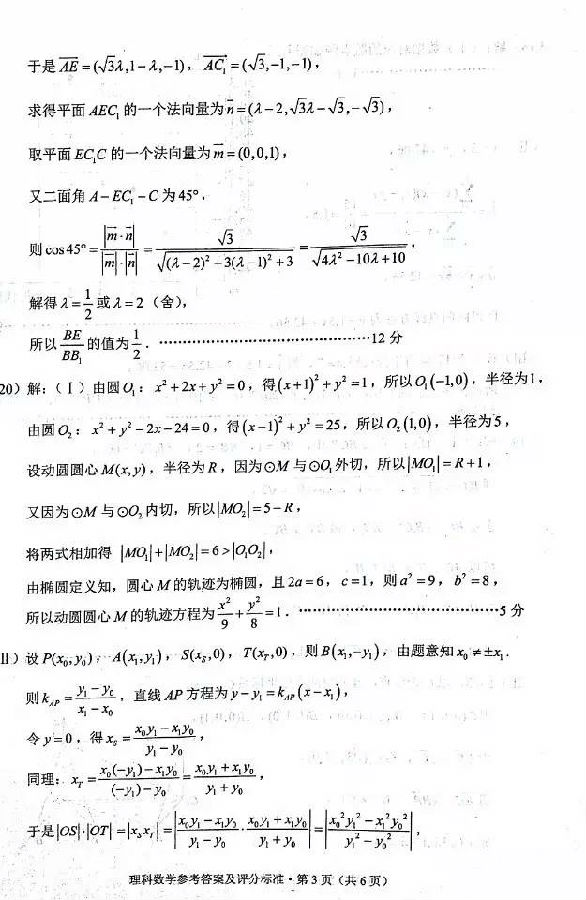 于是 $\overrightarrow{AE}=(\sqrt{3}\lambda,1-\lambda,-1)$，$\overrightarrow{AC_1}=(\sqrt{3},-1,-1)$，
求得平面 $AEC_1$ 的一个法向量为 $\vec{n}=(\lambda-2,\sqrt{3}\lambda-\sqrt{3},-\sqrt{3})$，
取平面 $EC_1C$ 的一个法向量为 $\vec{m}=(0,0,1)$，
又二面角 $A-EC_1-C$ 为 45°，
则 $\cos 45°=\frac{|\vec{m}\cdot\vec{n}|}{|\vec{m}|\cdot|\vec{n}|}=\frac{\sqrt{3}}{\sqrt{(\lambda-2)^2-3(\lambda-1)^2+3}}=\frac{\sqrt{3}}{\sqrt{4\lambda^2-10\lambda+10}}$．
解得 $\lambda=\frac{1}{2}$ 或 $\lambda=2$（舍），
所以 $\frac{BE}{BB_1}$ 的值为 $\frac{1}{2}$．……………………………12 分
20）解：（Ⅰ）由圆 $O_1$：$x^2+2x+y^2=0$，得 $(x+1)^2+y^2=1$，所以 $O_1(-1,0)$，半径为1．
由圆 $O_2$：$x^2+y^2-2x-24=0$，得 $(x-1)^2+y^2=25$，所以 $O_2(1,0)$，半径为5，
设动圆圆心 $M(x,y)$，半径为 $R$，因为⊙$M$ 与⊙$O_1$ 外切，所以 $|MO_1|=R+1$，
又因为⊙$M$ 与⊙$O_2$ 内切，所以 $|MO_2|=5-R$，
将两式相加得 $|MO_1|+|MO_2|=6>|O_1O_2|$，
由椭圆定义知，圆心 $M$ 的轨迹为椭圆，且 $2a=6$，$c=1$，则 $a^2=9$，$b^2=8$，
所以动圆圆心 $M$ 的轨迹方程为 $\frac{x^2}{9}+\frac{y^2}{8}=1$．……………………………5 分
Ⅱ）设 $P(x_0,y_0)$，$A(x_1,y_1)$，$S(x_S,0)$，$T(x_T,0)$，则 $B(x_1,-y_1)$，由题意知 $x_0\neq\pm x_1$．
则 $k_{AP}=\frac{y_1-y_0}{x_1-x_0}$，直线 $AP$ 方程为 $y-y_1=k_{AP}(x-x_1)$，
令 $y=0$，得 $x_S=\frac{x_0y_1-x_1y_0}{y_1-y_0}$，
同理：$x_T=\frac{x_0(-y_1)-x_1y_0}{(-y_1)-y_0}=\frac{x_0y_1+x_1y_0}{y_1+y_0}$，
于是 $|OS|\cdot|OT|=|x_Sx_T|=\left|\frac{x_0y_1-x_1y_0}{y_1-y_0}\cdot\frac{x_0y_1+x_1y_0}{y_1+y_0}\right|=\left|\frac{x_0^2y_1^2-x_1^2y_0^2}{y_1^2-y_0^2}\right|$，
理科数学参考答案及评分标准·第 3 页（共 6 页）